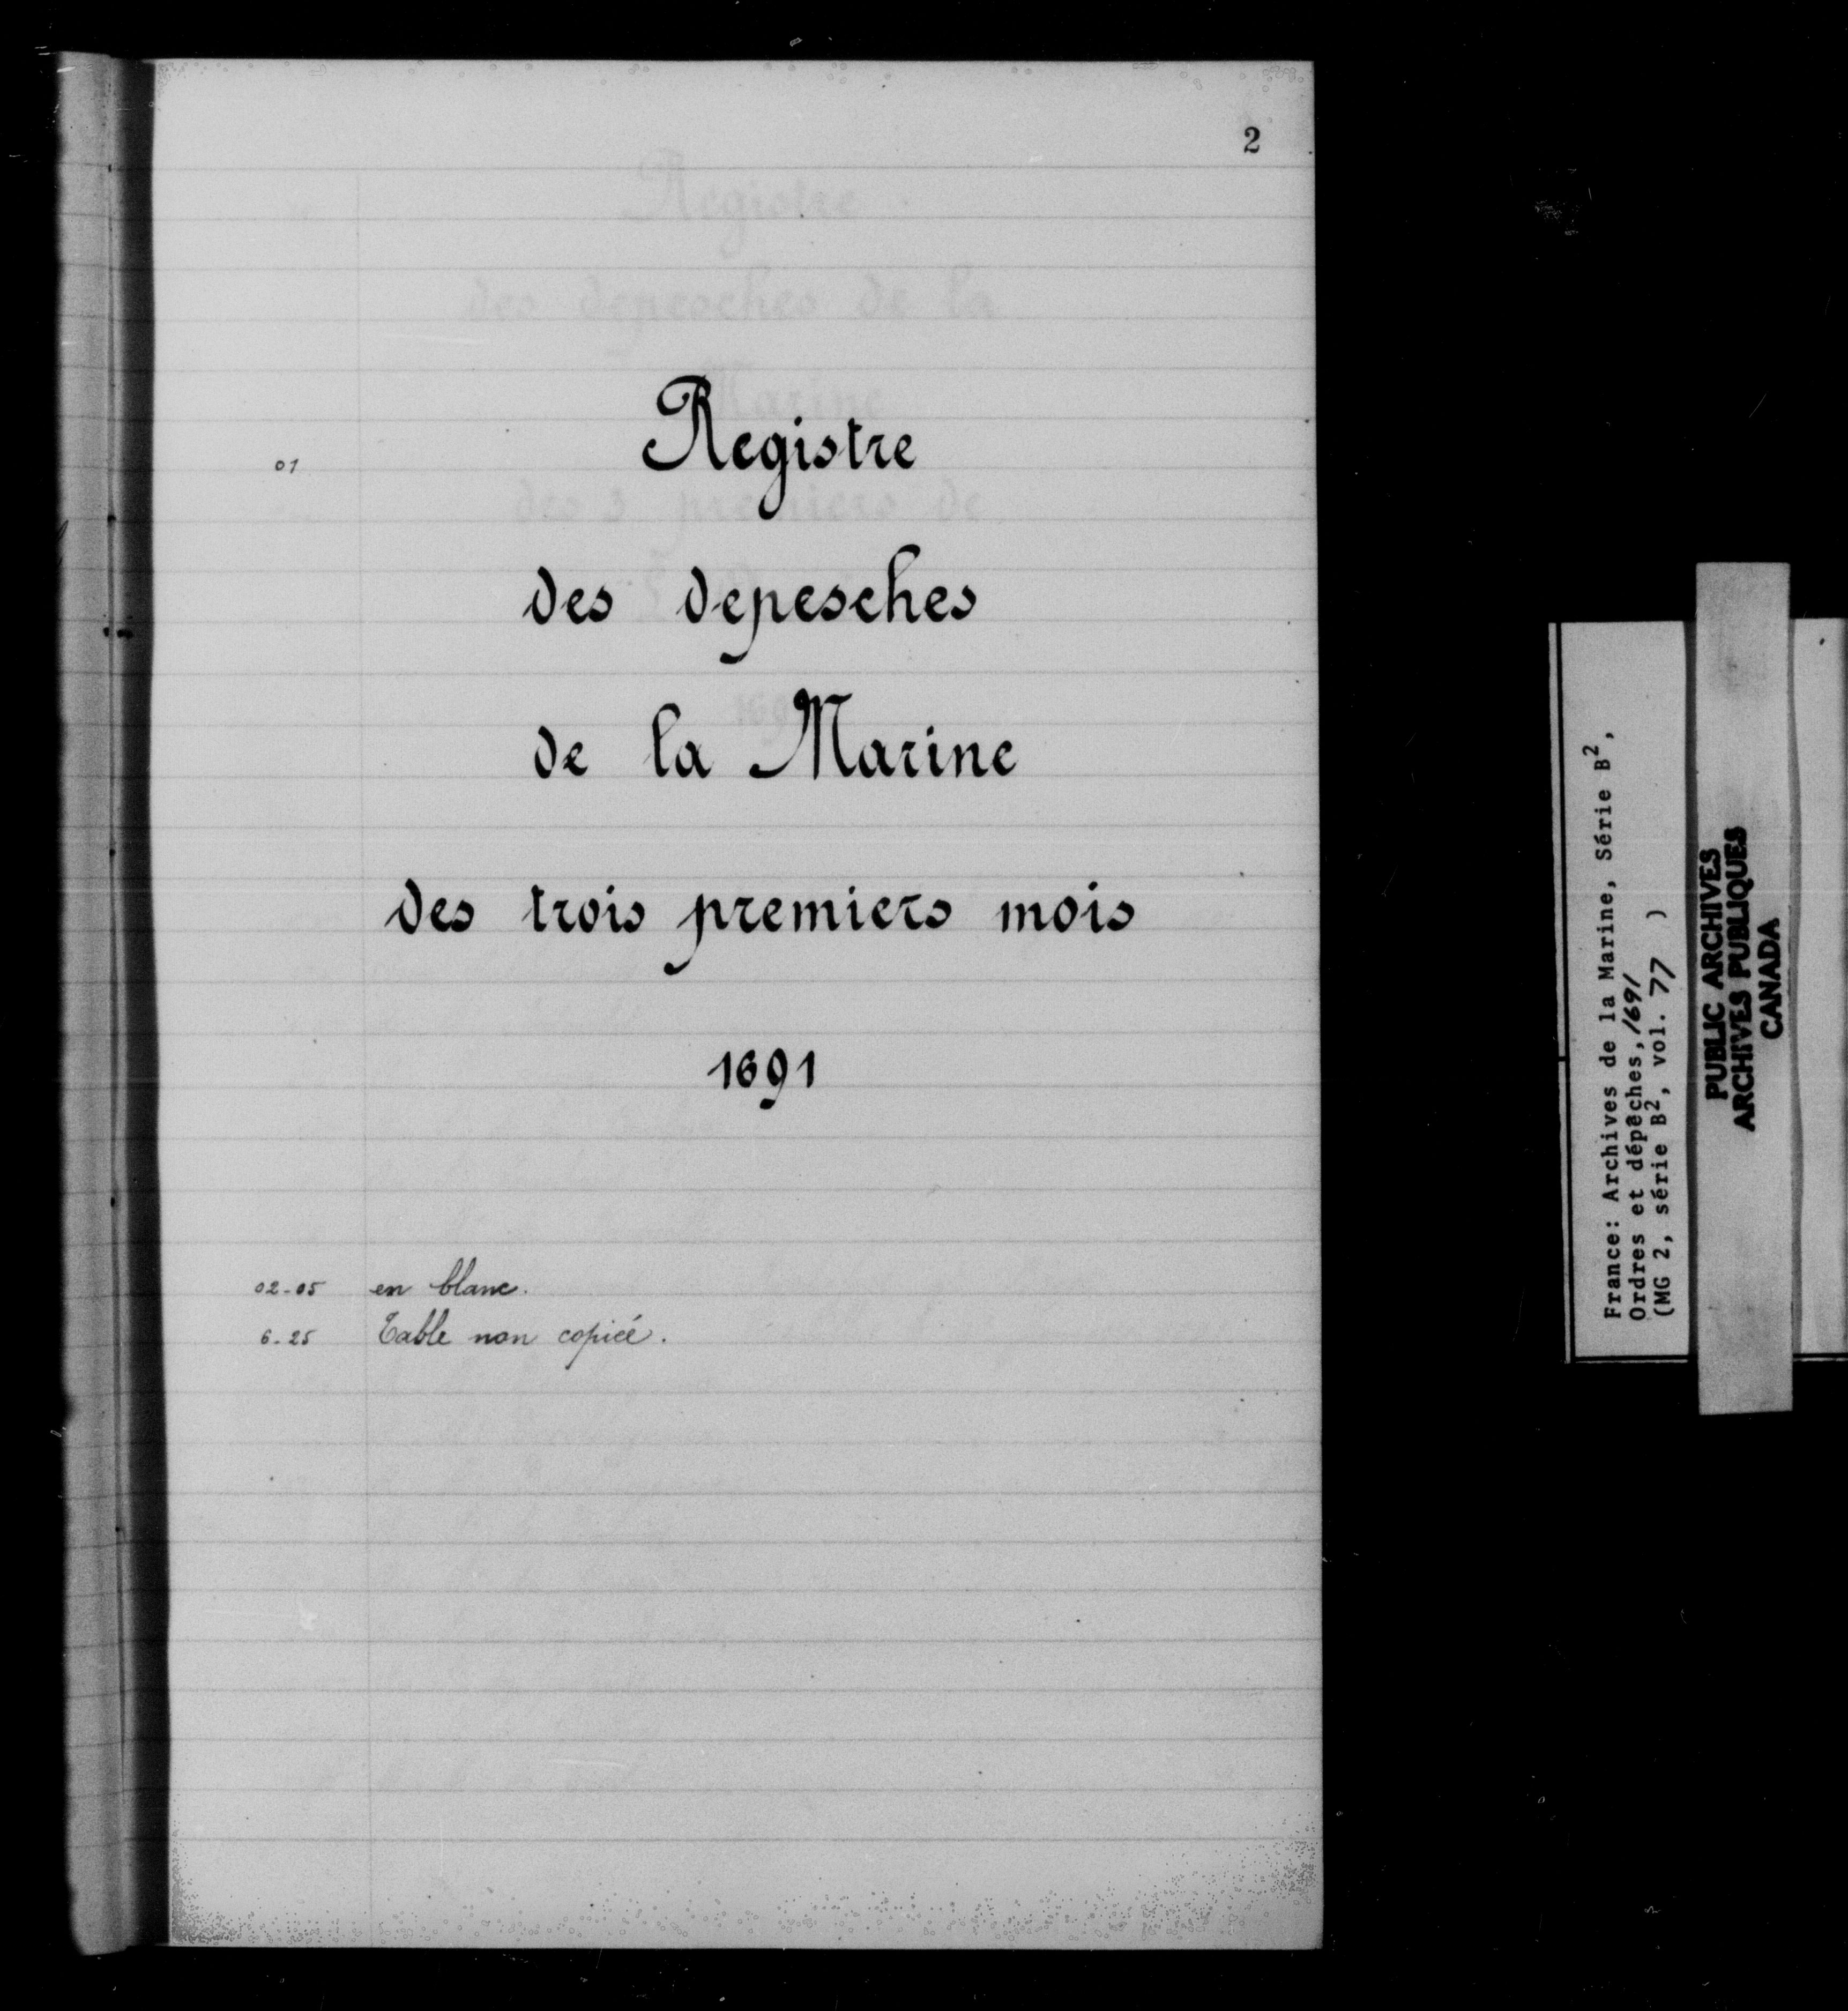 2
01 Registre
des depesches
de la Marine
des trois premiers mois
1691
02-05 en blanc.
6-25 Table non copiée.
France: Archives de la Marine, Série B²,
Ordres et dépêches, 1691
(MG 2, série B², vol. 77 )
PUBLIC ARCHIVES
ARCHIVES PUBLIQUES
CANADA